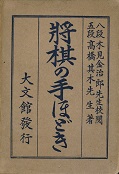 八段木見金治郎先生校閲
五段高橋其木先生著
將棋の手ほどき
大文館發行